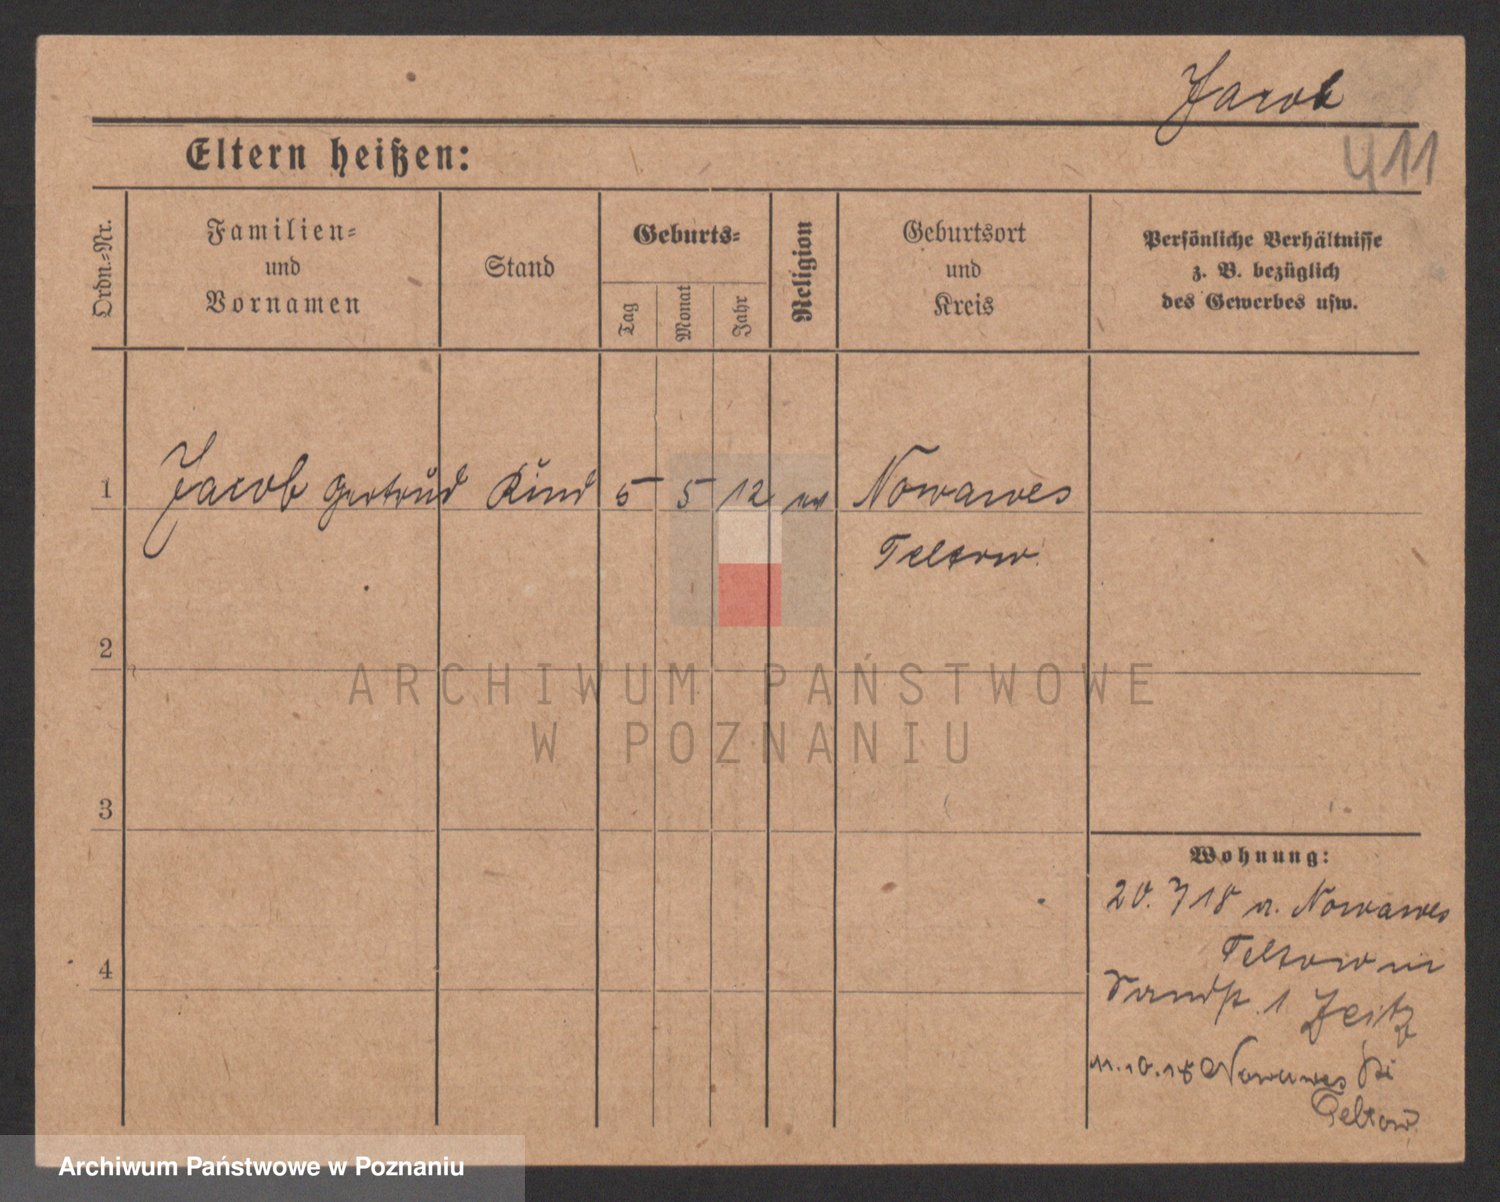 Jacob
411
Eltern heißen:
Ordn.-Nr.
Familien-
und
Vornamen
Stand
Geburts-
Tag
Monat
Jahr
Religion
Geburtsort
und
Kreis
Persönliche Verhältnisse
z. B. bezüglich
des Gewerbes usw.
1 Jacob Gertrud Kind 5 5 12 ev Nowawes
Teltow
2
3
4
Wohnung:
20. 7 18 v. Nowawes
Teltow in
Sandst. 1 Zeitz
11.10.18 Nowawes
Teltow
ARCHIWUM PAŃSTWOWE
W POZNANIU
Archiwum Państwowe w Poznaniu